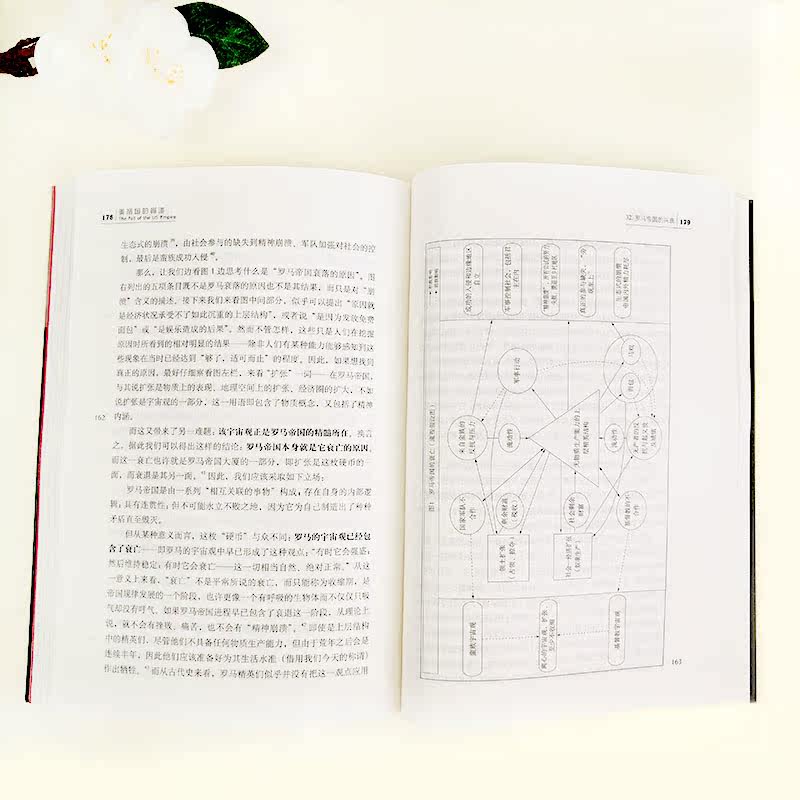 178
美帝国的崩溃
The Fall of the US Empire
生态式的崩溃”，由社会参与的缺失到精神崩溃、军队加强对社会的控
制，最后是蛮族成功入侵”。
那么，让我们边看图1边思考什么是“罗马帝国衰落的原因”，图
右列出的五项条目既不是罗马衰落的原因也不是其结果，而只是对“崩
溃”含义的描述。接下来我们来看图中间部分，似乎可以提出“原因就
是经济状况承受不了如此沉重的上层结构”，或者说“是因为发放免费
面包”或“是娱乐造成的后果”。然而不管怎样，这些只是人们在挖掘
原因时所看到的相对明显的结果——除非人们有某种能力能够感知到这
些现象在当时已经达到“够了，适可而止”的程度。因此，如果想找到
真正的原因，最好仔细察看图左栏，来看“扩张”一词——在罗马帝国，
与其说扩张是物质上的表现、地理空间上的扩张、经济圈的扩大，不如
说扩张是宇宙观的一部分，这一用语即包含了物质概念，又包括了精神
162
内涵。
而这又带来了另一难题：该宇宙观正是罗马帝国的精髓所在，换言
之，据此我们可以得出这样的结论：罗马帝国本身就是它衰亡的原因，
而这一衰亡也许就是罗马帝国大厦的一部分，即扩张是这枚硬币的一
面，而衰退是其另一面。因此，我们应该采取如下立场：
罗马帝国是由一系列“相互关联的事物”构成；存在自身的内部逻
辑；具有连贯性；但不可能永立不败之地，因为它为自己制造出了种种
矛盾直至毁灭。
但从某种意义而言，这枚“硬币”与众不同：罗马的宇宙观已经包
含了衰亡——即罗马的宇宙观中早已形成了这种观点：“有时它会强盛；
然后维持稳定；有时它会衰亡——这一切相当自然、绝对正常。”从这
一意义上来看，“衰亡”不是平常所说的衰亡，而只能称为收缩期，是
帝国规律发展的一个阶段，也许更像一个有呼吸的生物体而不仅仅只吸
气却没有呼气。如果罗马帝国进程早已包含了衰退这一阶段，从理论上
说，就不会有挫败、痛苦，也不会有“精神崩溃”。即使是上层结构
中的精英们，尽管他们不具备任何物质生产能力，但由于荒年之后会是
连续丰年，因此他们应该准备好为其生活水准（借用我们今天的称谓）
作出牺牲。而从古代史来看，罗马精英们似乎并没有把这一观点应用
179
图1 罗马帝国的衰亡
成功的入侵和边缘地区
自立
军事控制社会，包括君
主在内
真正的参与缺失，
生态式的崩溃
帝国内外精力耗尽
军事行动
马戏
来自蛮族的
反抗与压力
流动性
无物质生产能力的上
层精英结构
流动性
国家军队不
合作
剩余财富
税收
社会剩余
财富
基督教的不
合作
领土扩张
社会-经济扩张
蛮族宇宙观
离心的宇宙观，扩张
基督教宇宙观
163